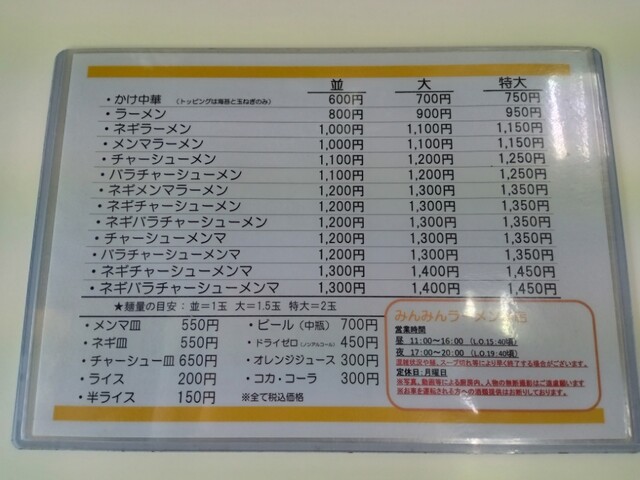 並 大 特大
・かけ中華 (トッピングは海苔と玉ねぎのみ) 600円 700円 750円
・ラーメン 800円 900円 950円
・ネギラーメン 1,000円 1,100円 1,150円
・メンマラーメン 1,000円 1,100円 1,150円
・チャーシューメン 1,100円 1,200円 1,250円
・バラチャーシューメン 1,100円 1,200円 1,250円
・ネギメンマラーメン 1,200円 1,300円 1,350円
・ネギチャーシューメン 1,200円 1,300円 1,350円
・ネギバラチャーシューメン 1,200円 1,300円 1,350円
・チャーシューメンマ 1,200円 1,300円 1,350円
・バラチャーシューメンマ 1,200円 1,300円 1,350円
・ネギチャーシューメンマ 1,300円 1,400円 1,450円
・ネギバラチャーシューメンマ 1,300円 1,400円 1,450円
★麺量の目安：並＝1玉 大＝1.5玉 特大＝2玉
・メンマ皿 550円
・ネギ皿 550円
・チャーシュー皿 650円
・ライス 200円
・半ライス 150円
・ビール（中瓶） 700円
・ドライゼロ(ノンアルコール) 450円
・オレンジジュース 300円
・コカ・コーラ 300円
※全て税込価格
みんみんラーメン
営業時間
昼 11:00～16:00 (L.O.15:40頃)
夜 17:00～20:00 (L.O.19:40頃)
混雑状況や麺、スープ切れ等により早く終了する場合がございます。
定休日：月曜日
※写真、動画等による厨房内、人物の無断撮影はご遠慮願います
※お車を運転される方への酒類提供はお断りしております。